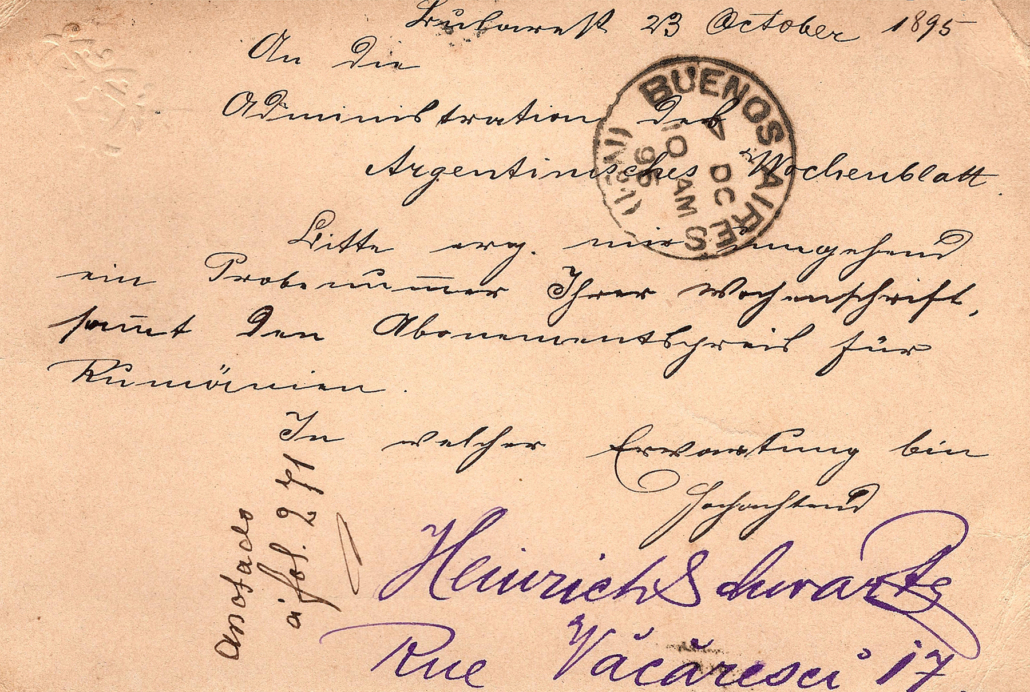 Bukarest 23 October 1895
An die
Administration des
Argentinisches Wochenblatt.
Bitte erg. mir umgehend
ein Probenum̅er Ihrer Wochenschrift,
sam̅t den Abonementspreis für
Rumänien.
In welcher Erwartung bin
Hochachtend
Heinrich Schwartz
Rue Văcăresci 17
anotado
á fol. 271
BUENOS AIRES
7 DC
10 AM
95